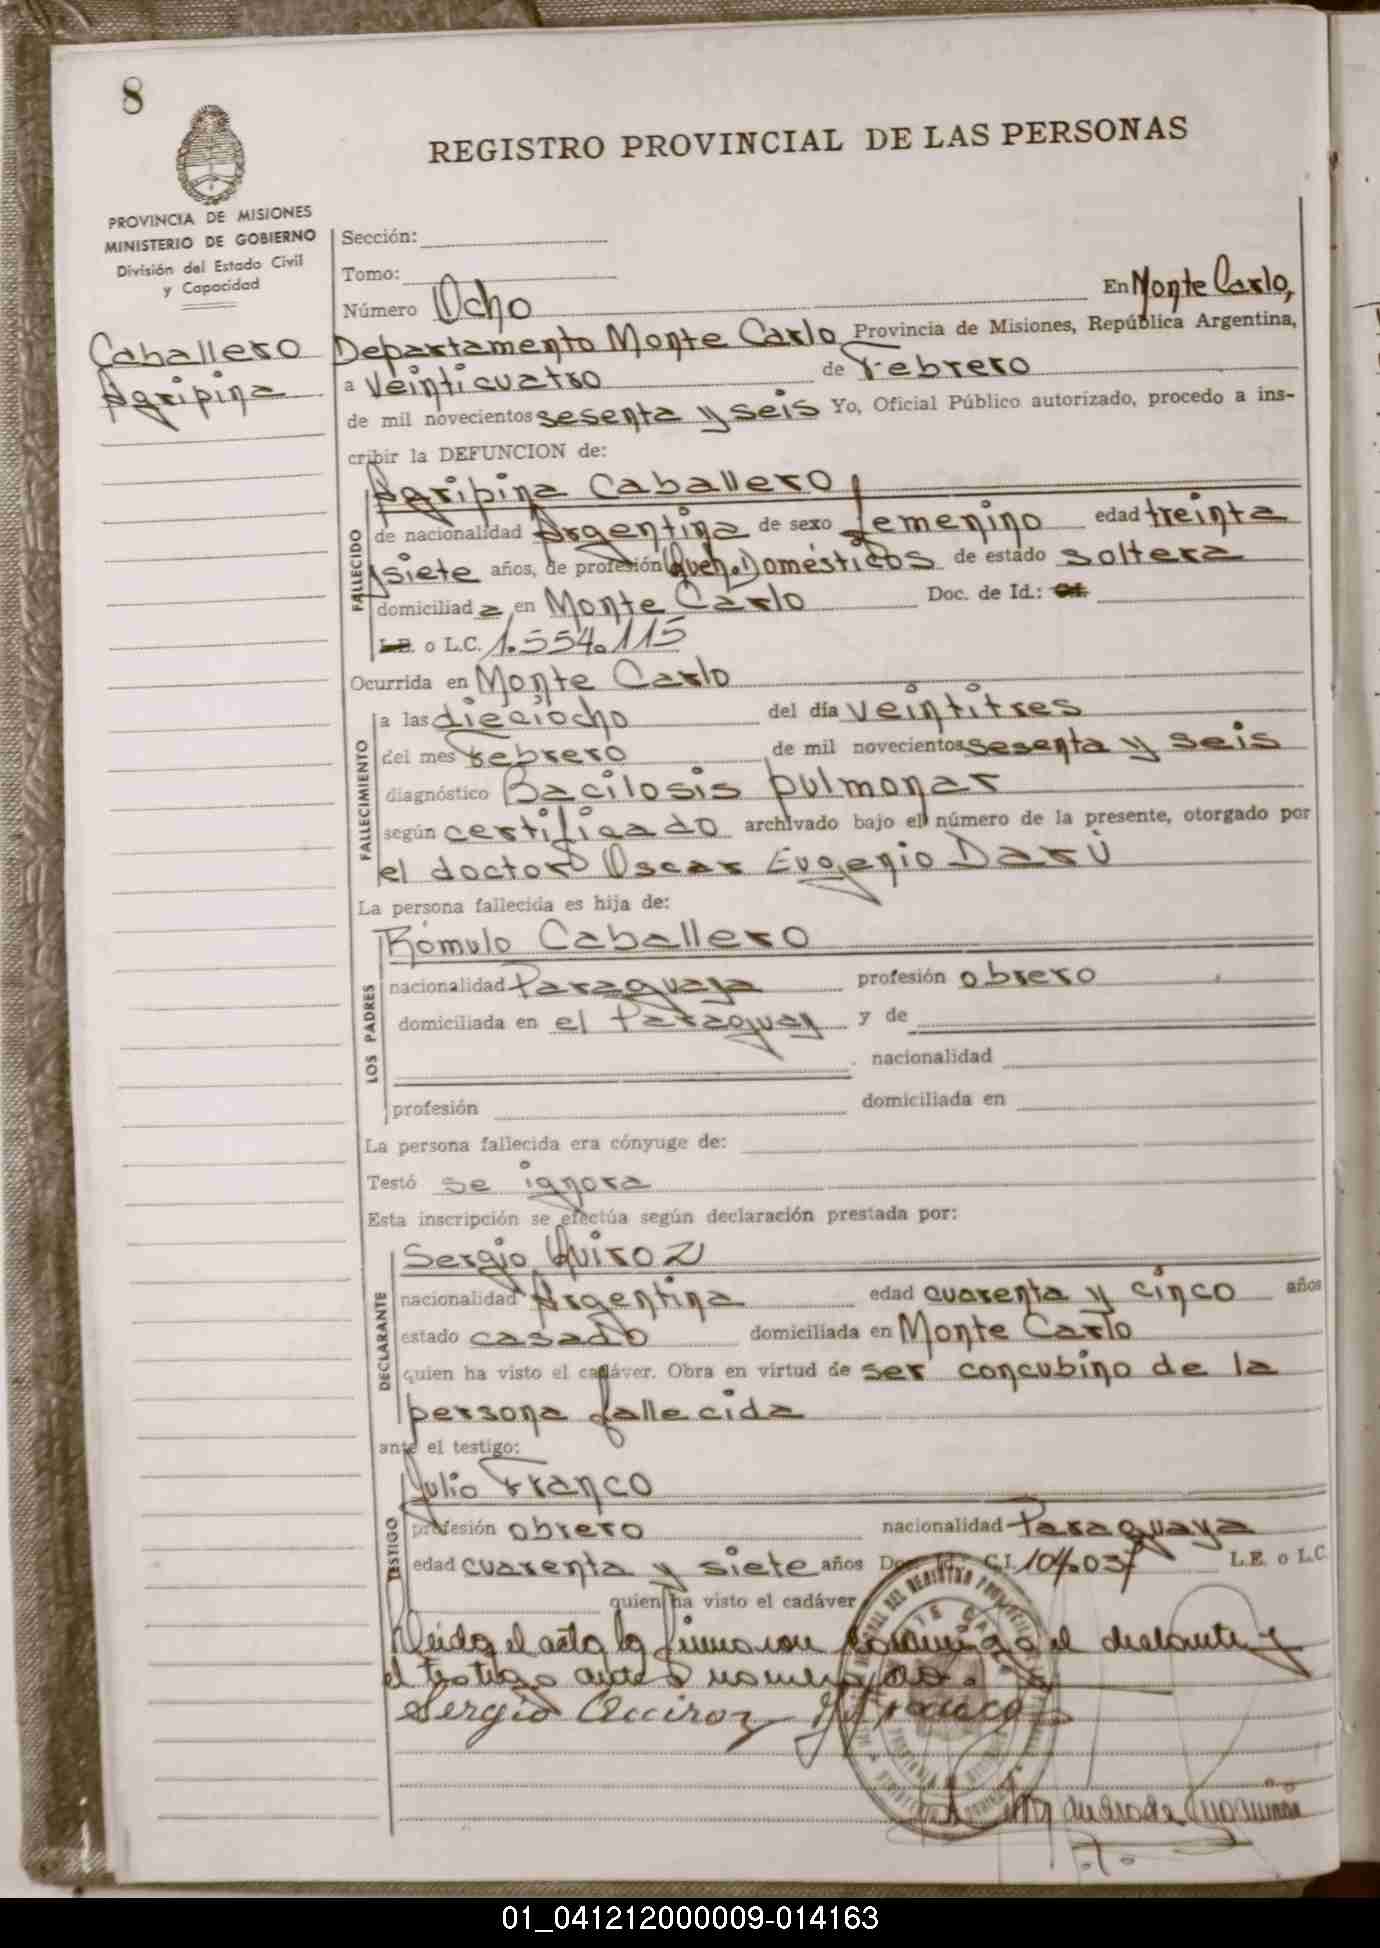 8
REGISTRO PROVINCIAL DE LAS PERSONAS
PROVINCIA DE MISIONES
MINISTERIO DE GOBIERNO
División del Estado Civil
y Capacidad
Caballero
Agripina
Sección:
Tomo:
Número Ocho En Monte Carlo,
Departamento Monte Carlo Provincia de Misiones, República Argentina,
a veinticuatro de Febrero
de mil novecientos sesenta y seis Yo, Oficial Público autorizado, procedo a ins-
cribir la DEFUNCION de:
FALLECIDO
Agripina Caballero
de nacionalidad Argentina de sexo femenino edad treinta
y siete años, de profesión Queh. Domésticos de estado soltera
domiciliada en Monte Carlo Doc. de Id.:
L.E. o L.C. 1.554.115
Ocurrida en Monte Carlo
FALLECIMIENTO
a las dieciocho del día veintitres
del mes Febrero de mil novecientos sesenta y seis
diagnóstico Bacilosis pulmonar
según certificado archivado bajo el número de la presente, otorgado por
el doctor Oscar Eugenio Darú
La persona fallecida es hija de:
LOS PADRES
Rómulo Caballero
nacionalidad Paraguaya profesión obrero
domiciliada en el Paraguay y de
nacionalidad
profesión domiciliada en
La persona fallecida era cónyuge de:
Testó se ignora
Esta inscripción se efectúa según declaración prestada por:
DECLARANTE
Sergio Quiroz
nacionalidad Argentina edad cuarenta y cinco años
estado casado domiciliada en Monte Carlo
quien ha visto el cadáver. Obra en virtud de ser concubino de la
persona fallecida
ante el testigo:
TESTIGO
Julio Franco
profesión obrero nacionalidad Paraguaya
edad cuarenta y siete años Doc. Id.: C.I. 104.037 L.E. o L.C.
quien ha visto el cadáver
Leída el acta la firman conmigo el declarante y
el testigo antes nombrado.
Sergio Quiroz J. Franco
01_041212000009-014163